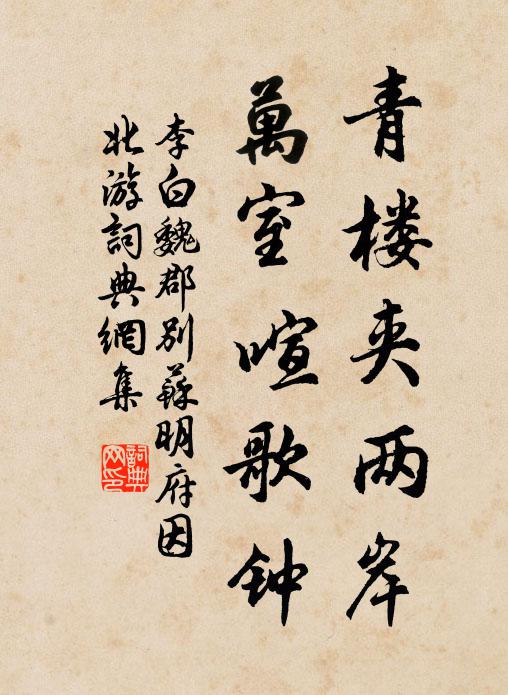 青楼夹两岸
萬室喧歌钟
李白魏郡别蘇明府因
北游詞典網集
詞典网印